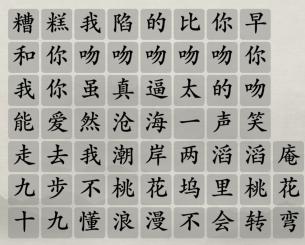 糟糕我陷的比你早
和你吻吻吻吻吻你
我你虽真逼太的吻
能爱然沧海一声笑
走去我潮岸两滔滔庵
九步不桃花坞里桃花
十九懂浪漫不会转弯